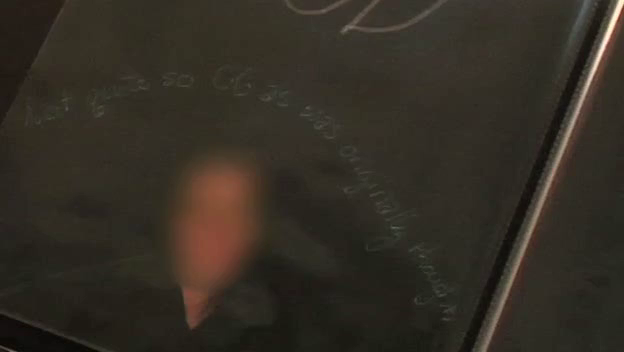 not quite so CG as was originally thought